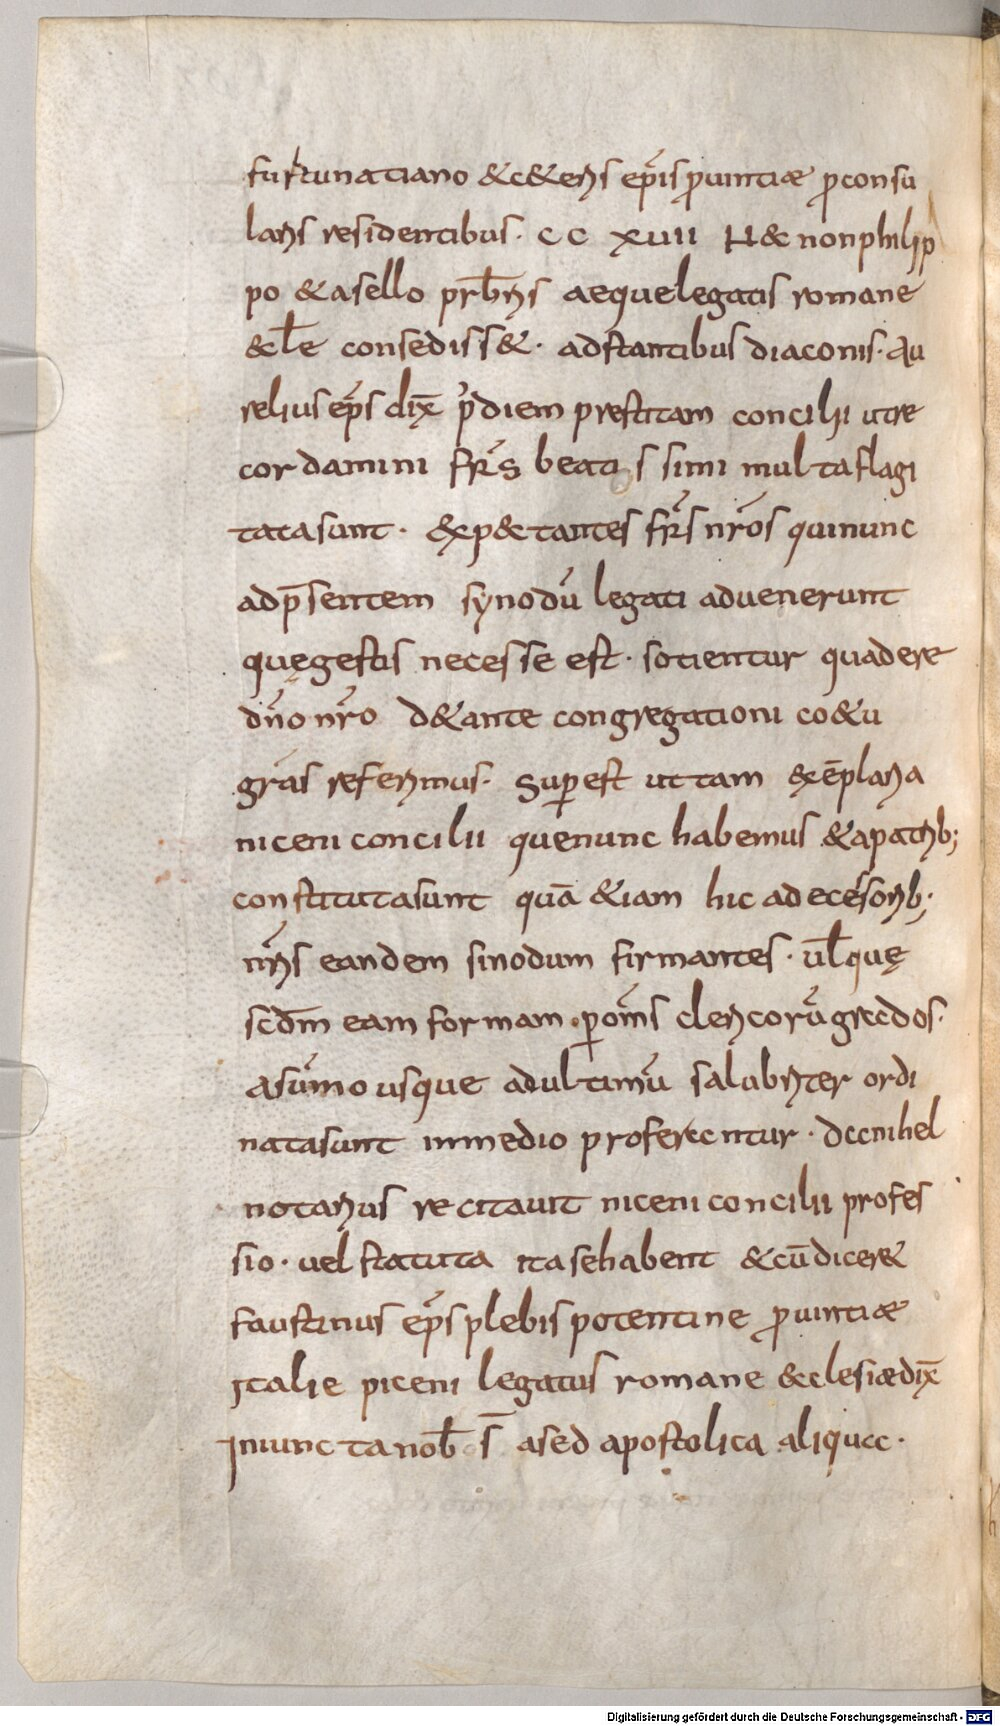 furtunatiano &c&eris ep̃is ꝓuintiæ ꝓconsu
laris residentibus· CC XVII N& nonphilip
po & asello prb̃ris aequelegatis romane
&cl̃e consediss&· adstantibus diaconis· Au
relius ep̃s dix̃ p̃diem prestitam concilii utre
cordamini fr̃s beatissimi multa flagi
tatasunt· &xp&tantes fr̃s nr̃os quinunc
adp̃sentem synodũ legati aduenerunt
quęgestis necesse est· sotientur quadere
dño nr̃o d&ante congregationi co&u
gras̃ referimus· Superest ut tam &xẽplaria
niceni concilii quenunc habemus &apatrib;
constitutasunt quã &iam hic adecẽsorib;
nr̃is eandem sinodum firmantes· ul̃quę
scdm̃ eam formam ꝑom̃s clericorũ gradus·
asũmo usque adultimũ salubriter ordi
natasunt inmedio proferentur· Danihel
notarius recitauit niceni concilii profes
sio· uel statuta ita sehabent &cũdicer&
faustinus ep̃s plebis potentine ꝓuintiæ
Italie piceni legatus romane &cclesiædix̃
Iniuncta nob̃ s̃ ased apostolica aliqua·
Digitalisierung gefördert durch die Deutsche Forschungsgemeinschaft - DFG